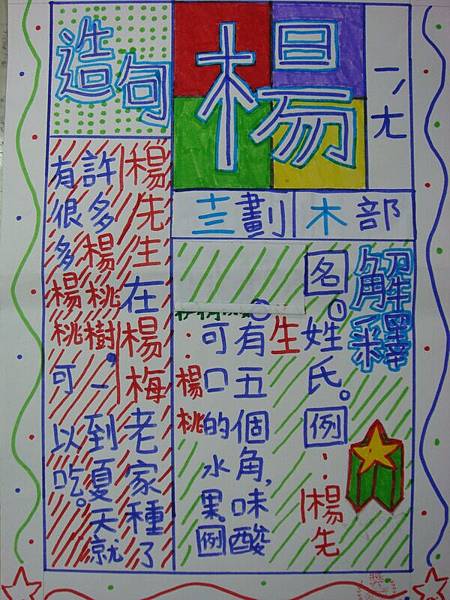 楊
ㄧㄤˊ
十三劃
木部
解釋
名。①姓氏。例：楊先
生
。有五個角,味酸
可口的水果。例
：楊桃
造句
楊先生在楊梅老家種了
許多楊桃樹。一到夏天就
有很多楊桃可以吃。